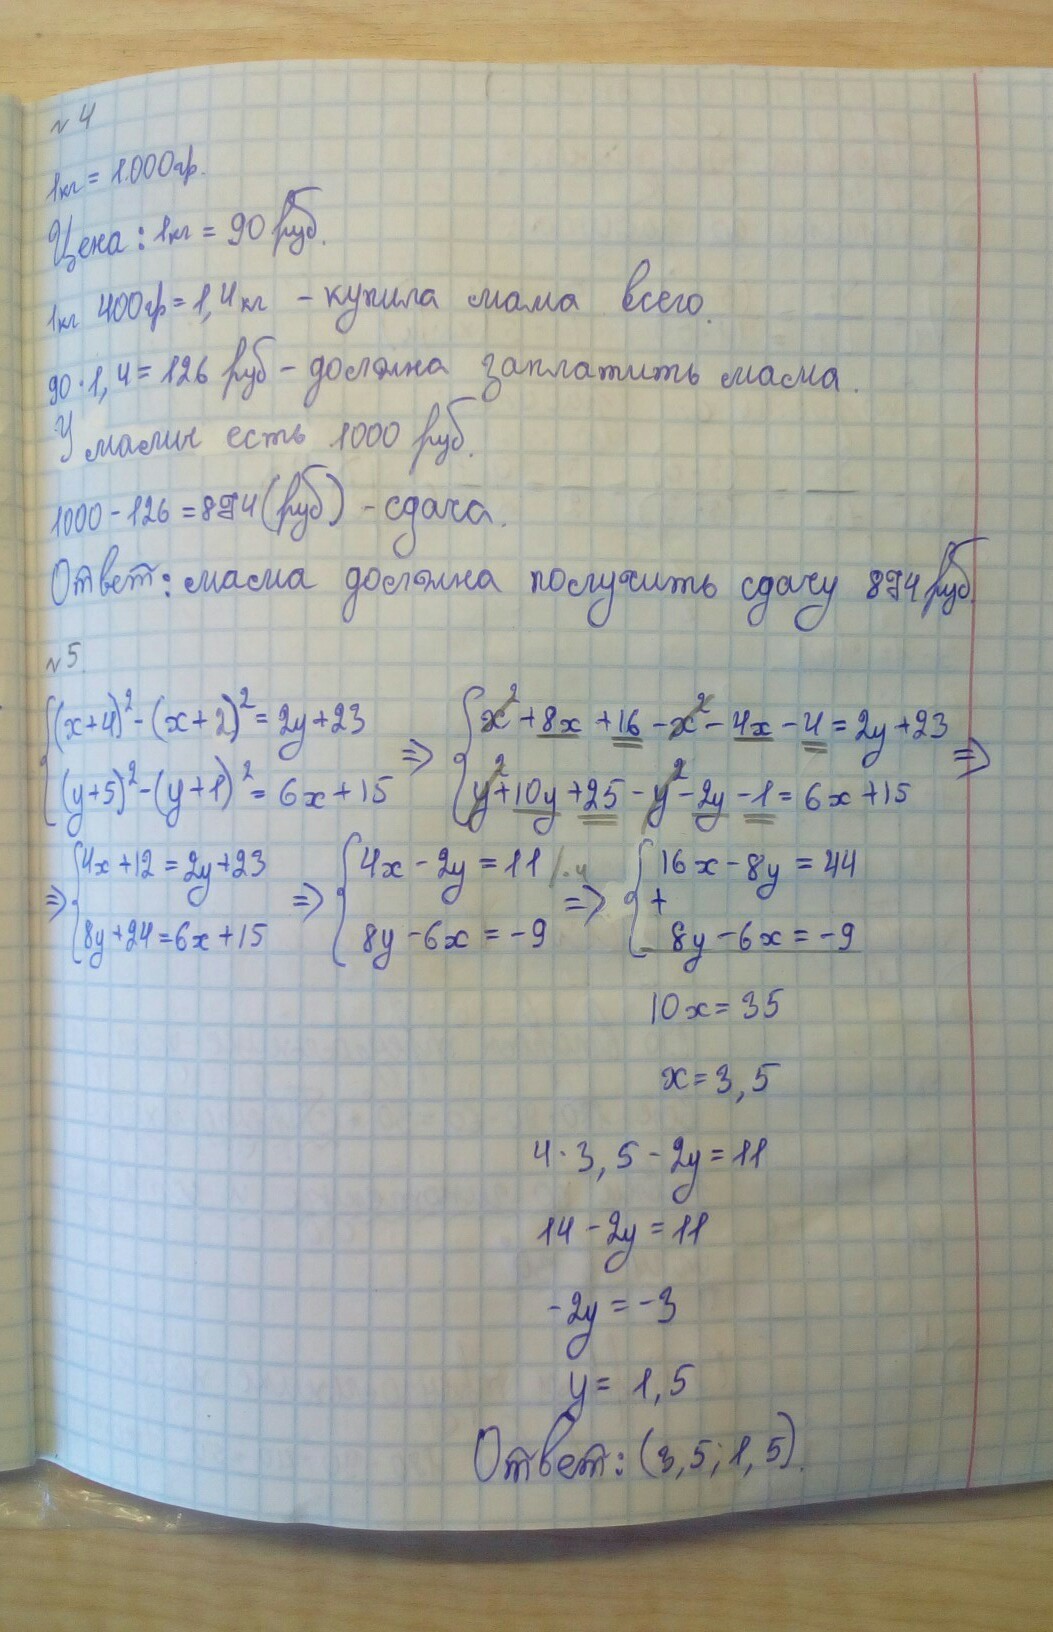 № 4
1кг = 1.000гр.
Цена: 1кг = 90 руб.
1кг 400гр = 1,4кг - купила мама всего.
90·1,4 = 126 руб - должна заплатить мама.
У мамы есть 1000 руб.
1000 - 126 = 874 (руб) - сдача.
Ответ: мама должна получить сдачу 874 руб
№ 5.
{(x+4)² - (x+2)² = 2y+23 => {x² + 8x + 16 - x² - 4x - 4 = 2y + 23 =>
{(y+5)² - (y+1)² = 6x+15 {y² + 10y + 25 - y² - 2y - 1 = 6x + 15
=> {4x + 12 = 2y + 23 => {4x - 2y = 11 |·4 => {16x - 8y = 44
+
{8y + 24 = 6x + 15 {8y - 6x = -9 {8y - 6x = -9
10x = 35
x = 3,5
4·3,5 - 2y = 11
14 - 2y = 11
-2y = -3
y = 1,5
Ответ: (3,5; 1,5).